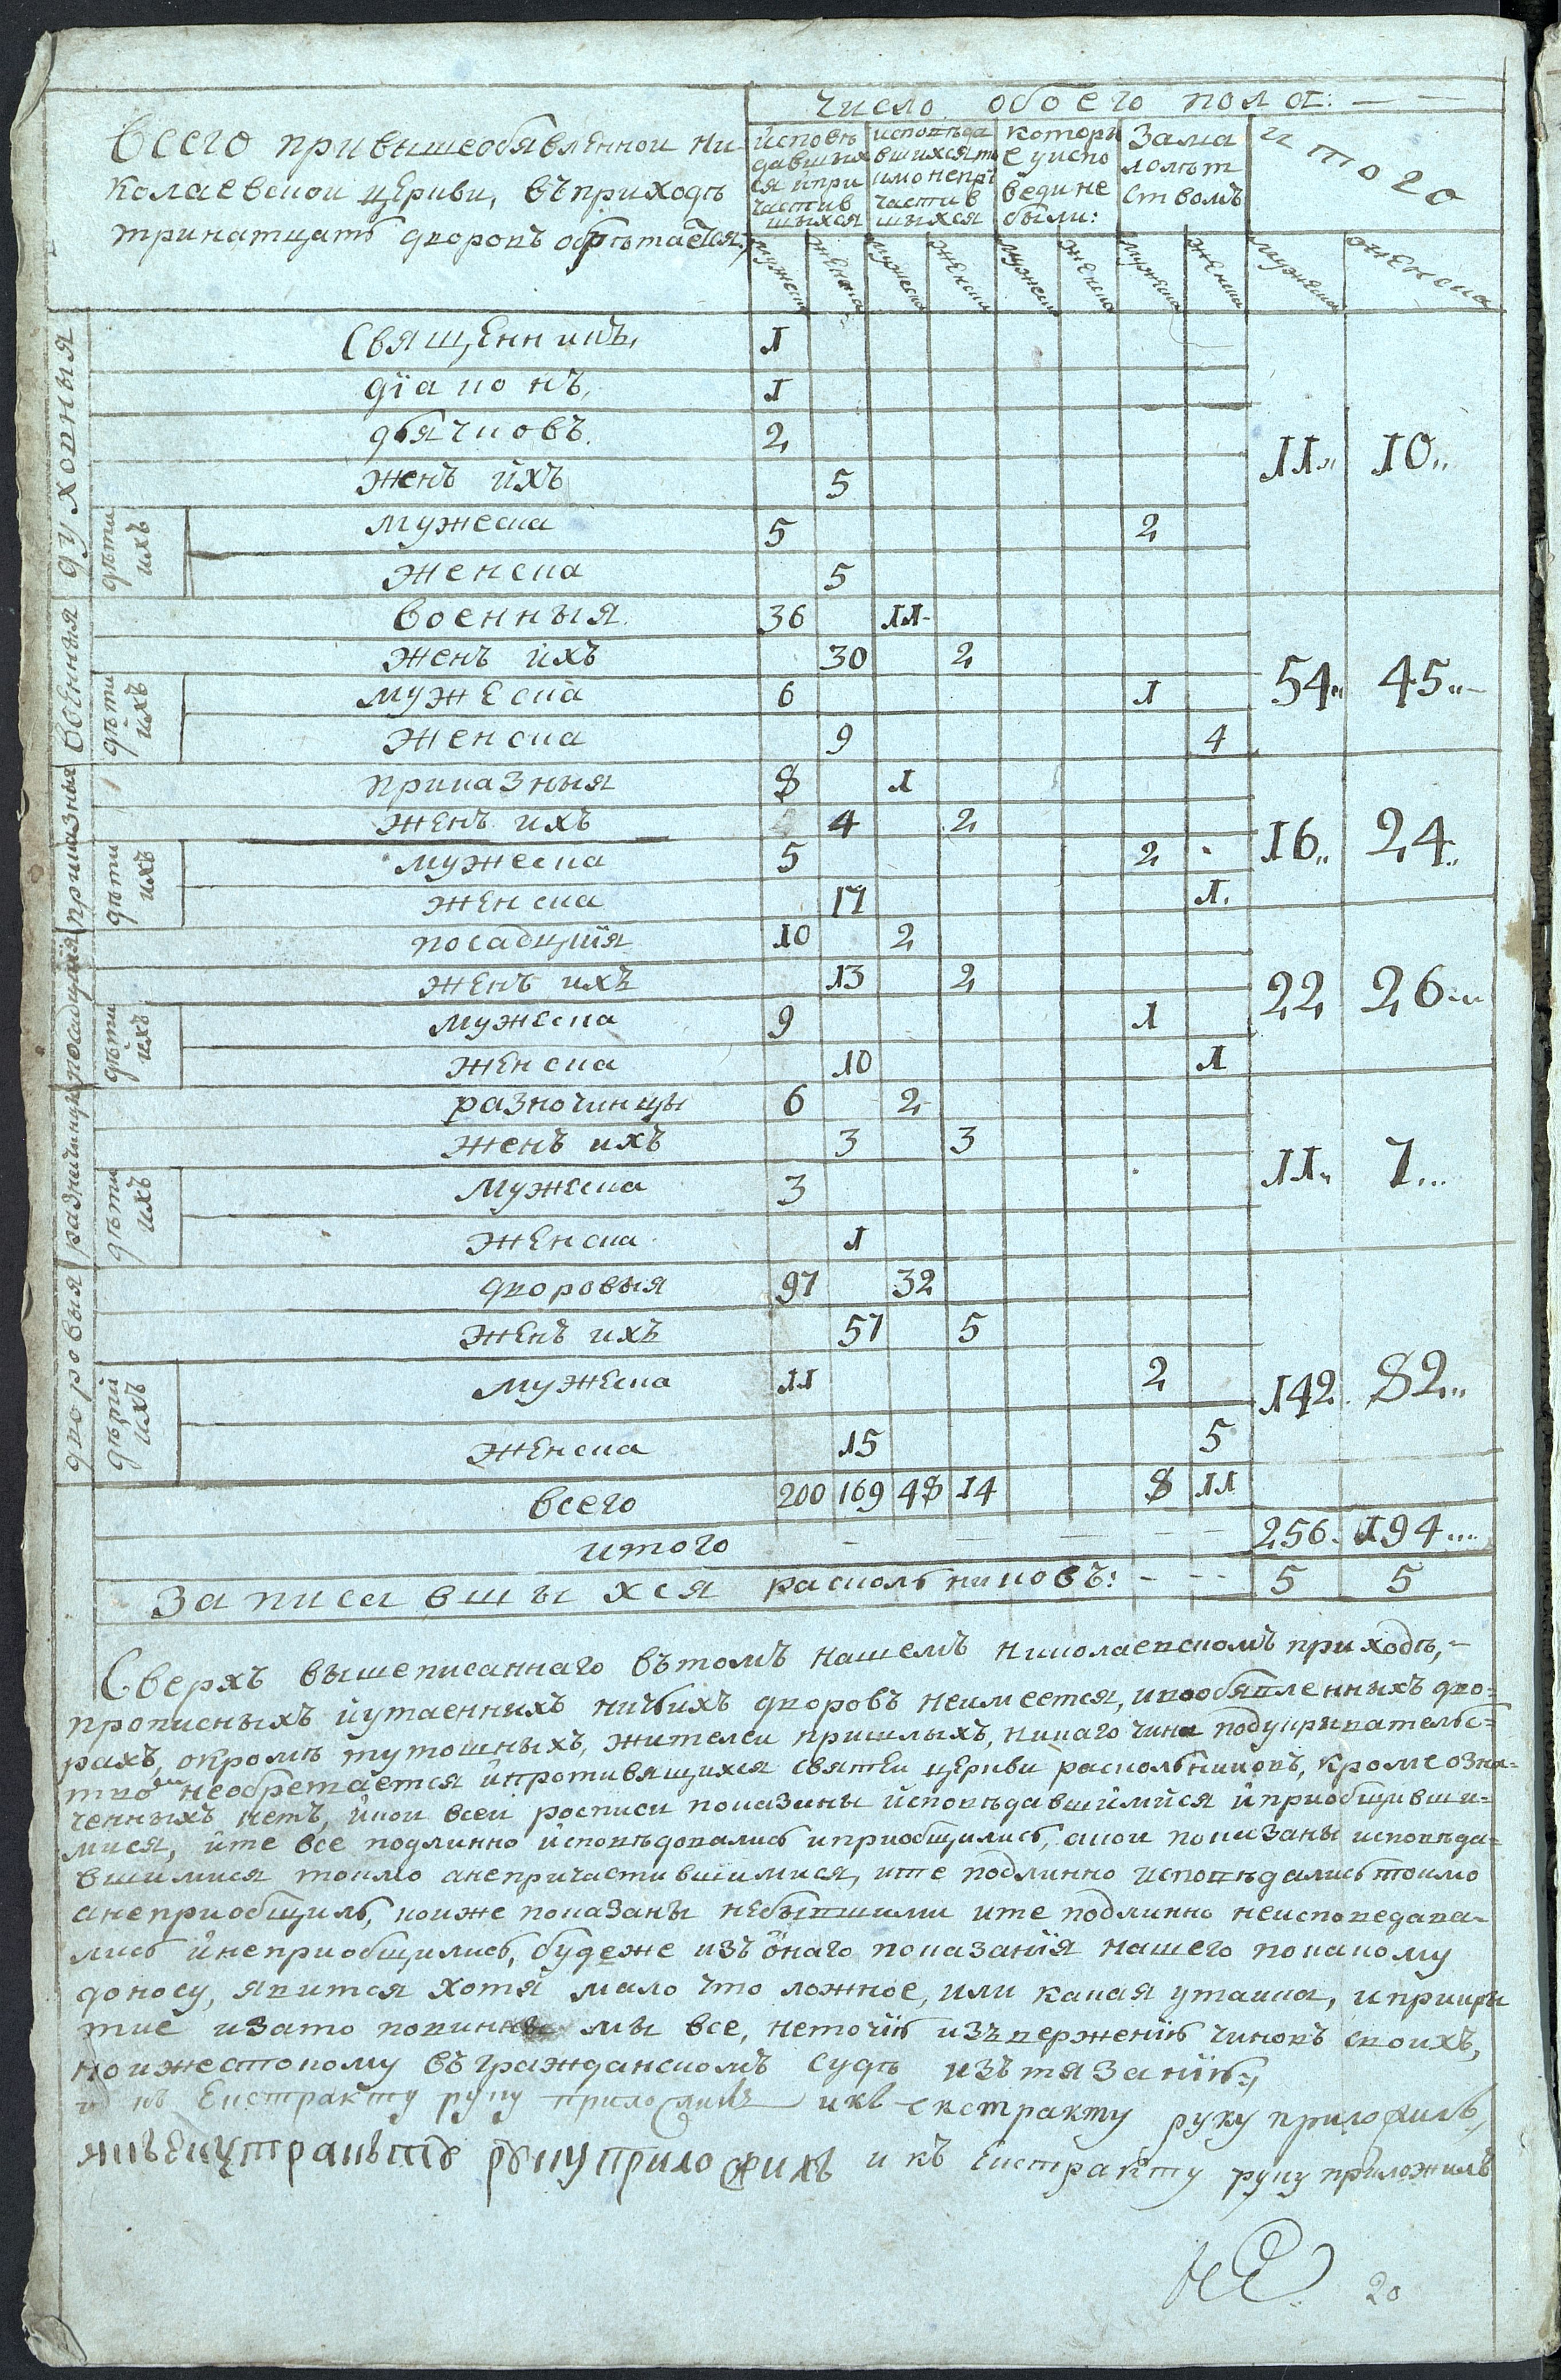 Число обоего пола:
Всего привышеобявленнои ни-
колаевскои церкви, въприходѣ
тринатцать дворовъ обрѣтается:
исповѣ
давших
ся ипри
частив
шыхся
исповѣда
вшихся то
кмо непри
частив
шыхся
которы
е уиспо
веди не
были:
Зама
лолѣт
ствомъ
итого
мужеска женска мужеска женска мужеска женска мужеска женска мужеска женска
духовныя
Священникъ, 1
діаконъ, 1
дьячковъ. 2
женъ ихъ 5
11 10
дѣти ихъ
мужеска 5 2
женска 5
военныя
военныя 36 11
женъ ихъ 30 2
54 45
дѣти ихъ
мужеска 6 1
женска 9 4
приказныя
приказныя 8 1
женъ ихъ 4 2
16 24
дѣти ихъ
мужеска 5 2
женска 17 1
посадцкія
посадцкія 10 2
женъ ихъ 13 2
22 26
дѣти ихъ
мужеска 9 1
женска 10 1
разночинцы
разночинцы 6 2
женъ ихъ 3 3
11 7
дѣти ихъ
мужеска 3
женска 1
дворовыя
дворовыя 97 32
женъ ихъ 57 5
дѣти ихъ
мужеска 11 2
142 82
женска 15 5
всего 200 169 48 14 8 11
итого 256 194
Записавшыхся раскольниковъ: 5 5
Сверхъ вышеписаннаго вътомъ нашемъ николаевскомъ приходѣ,
прописныхъ иутаенныхъ ничьихъ дворовъ неимеется, ивообявленныхъ дво-
рахъ, окромѣ тутошныхъ, жителеи пришлыхъ, никаго чина подукрывательс-
тво необретается ипротивящихся святеи церкви раскольниковъ, кроме озна-
ченныхъ нетъ, икои всеи росписи показаны исповѣдавшимися иприобщивши-
мися, ите все подлинно исповѣдовались иприобщились, акои показаны исповѣда-
вшимися токмо анепричастившимися, ите подлинно исповѣдались токмо
анеприобщилъ, коиже показаны небывшими ите подлинно неисповедава-
лись инеприобщились, будеже изъ онаго показания нашего покакому
доносу, явится хотя мало что ложное, или какая утаика, иприкры
тие изато повинны мы все, неточию изъвержению чиновъ своихъ,
ноижестокому въгражданскомъ судѣ изътязанию,
и къ Екстракту руку приложилъ икъ екстракту руку приложилъ,
руку приложилъ и къ Екстракту руку приложилъ
20